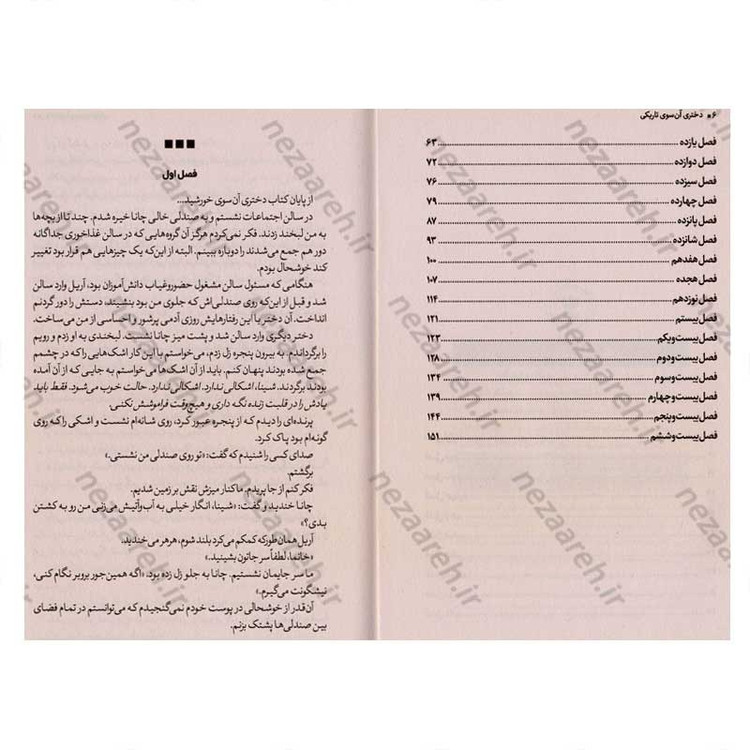 ۶ ■ دختری آن‌سوی تاریکی
فصل یازده ۶۳
فصل دوازده ۷۲
فصل سیزده ۷۶
فصل چهارده ۷۹
فصل پانزده ۸۷
فصل شانزده ۹۳
فصل هفدهم ۱۰۰
فصل هجده ۱۰۷
فصل نوزدهم ۱۱۴
فصل بیستم ۱۲۱
فصل بیست‌ویکم ۱۲۳
فصل بیست‌ودوم ۱۲۸
فصل بیست‌وسوم ۱۳۴
فصل بیست‌وچهارم ۱۳۹
فصل بیست‌وپنجم ۱۴۴
فصل بیست‌وششم ۱۵۱
فصل اول
از پایان کتاب دختری آن‌سوی خورشید...
در سالن اجتماعات نشستم و به صندلی خالی چانا خیره شدم. چند تا از بچه‌ها
به من لبخند زدند. فکر نمی‌کردم هرگز آن گروه‌هایی که در سالن غذاخوری جداگانه
دور هم جمع می‌شدند را دوباره ببینم. البته از این‌که یک چیزهایی هم قرار بود تغییر
کند خوشحال بودم.
هنگامی که مسئول سالن مشغول حضوروغیاب دانش‌آموزان بود، آریل وارد سالن
شد و قبل از این‌که روی صندلی‌اش که جلوی من بود بنشیند، دستش را دور گردنم
انداخت. آن دختر با این رفتارهایش روزی آدمی پرشور و احساسی از من می‌ساخت.
دختر دیگری وارد سالن شد و پشت میز چانا نشست. لبخندی به او زدم و رویم
را برگرداندم. به بیرون پنجره زل زدم، می‌خواستم با این کار اشک‌هایی را که در چشمم
جمع شده بودند پنهان کنم. باید از آن اشک‌ها می‌خواستم به جایی که از آن آمده
بودند برگردند. شینا، اشکالی ندارد. اشکالی ندارد. حالت خوب می‌شود. فقط باید
یادش را در قلبت زنده نگه داری و هیچ‌وقت فراموشش نکنی.
پرنده‌ای را دیدم که از پنجره عبور کرد، روی شانه‌ام نشست و اشکی را که روی
گونه‌ام بود پاک کرد.
صدای کسی را شنیدم که گفت: «تو روی صندلی من نشستی.»
برگشتم.
فکر کنم از جا پریدم. ما کنار میزش نقش بر زمین شدیم.
چانا خندید و گفت: «شینا، انگار خیلی به آب‌وآتیش می‌زنی من رو به کشتن
بدی؟»
آریل همان‌طور که کمکم می‌کرد بلند شوم، هرهر می‌خندید.
«خانما، لطفاً سر جاتون بشینید.»
ما سر جایمان نشستیم. چانا به جلو زل زده بود. «اگه همین‌جور بروبر نگام کنی،
نیشگونت می‌گیرم.»
آن‌قدر از خوشحالی در پوست خودم نمی‌گنجیدم که می‌توانستم در تمام فضای
بین صندلی‌ها پشتک بزنم.
nezaareh.ir